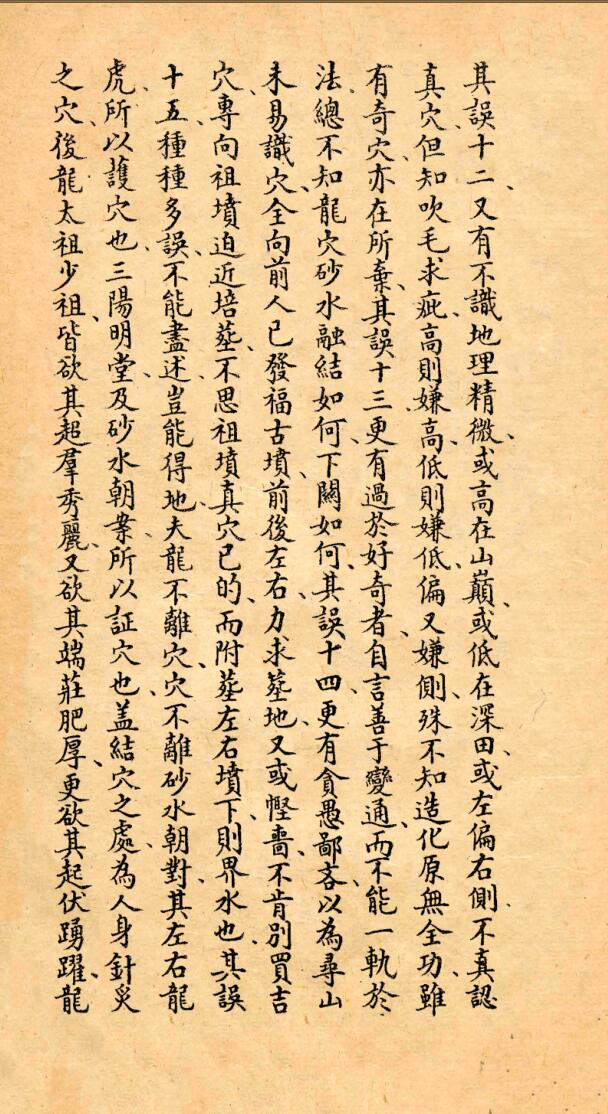 其誤十二、又有不識地理精微、或高在山巔、或低在深田、或左偏右側、不真認
真穴、但知吹毛求疵、高則嫌高、低則嫌低、偏又嫌側、殊不知造化原無全功、雖
有奇穴、亦在所棄、其誤十三、更有過於好奇者、自言善于變通、而不能一軌於
法、總不知龍穴砂水融結如何、下關如何、其誤十四、更有貪愚鄙吝、以為尋山
未易、識穴全向前人已發福古墳、前後左右、力求塟地、又或慳嗇、不肯別買吉
穴、專向祖墳迫近培塟、不思祖墳真穴已的、而附塟左右墳下、則界水也、其誤
十五、種種多誤、不能盡述、豈能得地、夫龍不離穴、穴不離砂水朝對、其左右龍
虎、所以護穴也、三陽明堂、及砂水朝案、所以証穴也、盖結穴之處、為人身針灸
之穴、後龍太祖少祖、皆欲其超羣秀麗、又欲其端莊肥厚、更欲其起伏踴躍、龍